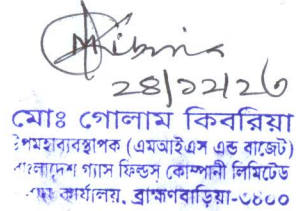 ২৪/১২/২৩
মোঃ গোলাম কিবরিয়া
উপমহাব্যবস্থাপক (এমআইএস এন্ড বাজেট)
বাংলাদেশ গ্যাস ফিল্ডস্ কোম্পানী লিমিটেড
কার্যালয়, ব্রাহ্মণবাড়িয়া-৩৪০০